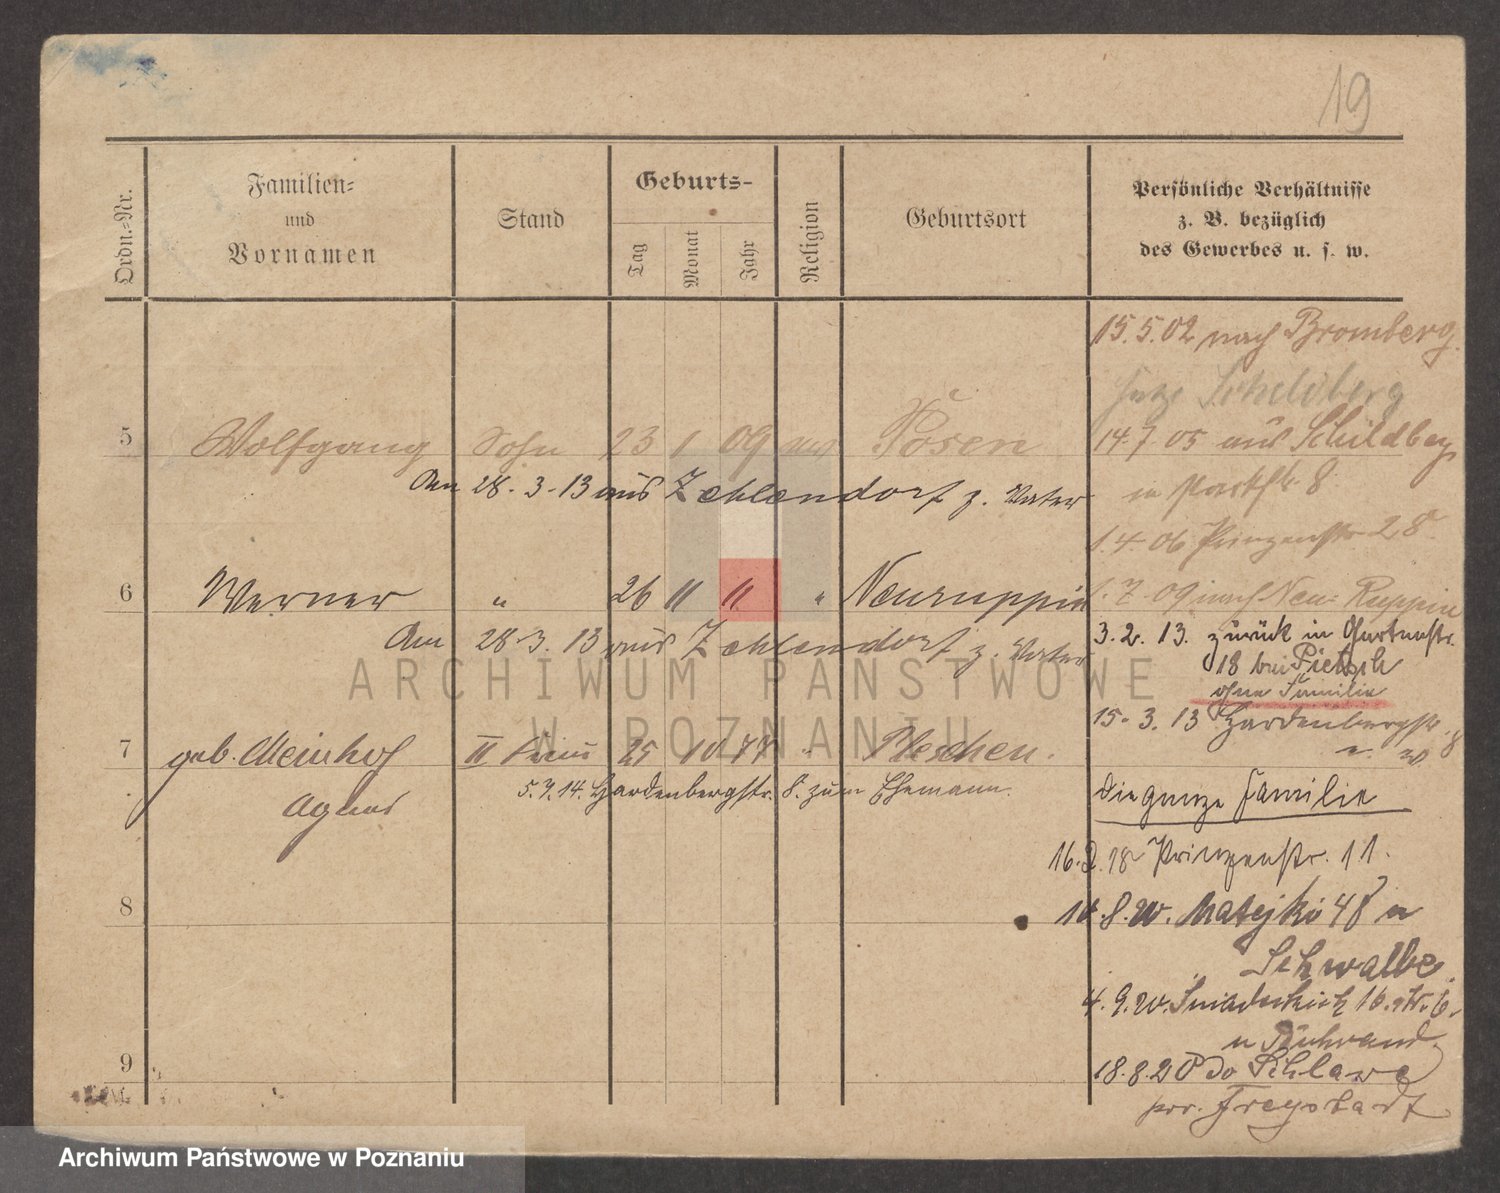 19
Ordn.-Nr.
Familien-
und
Vornamen
Stand
Geburts-
Tag
Monat
Jahr
Religion
Geburtsort
Persönliche Verhältnisse
z. B. bezüglich
des Gewerbes u. s. w.
5 Wolfgang Sohn 23 1 09 Posen
Am 28.3.13 aus Zehlendorf z. Vater
6 Werner " 26 11 11 " Neuruppin
Am 28.3.13 aus Zehlendorf z. Vater
7 geb. Meinhof II Frau 25 10 77 " Pleschen.
Agnes
5.7.14. Hardenbergstr. 8. zum Ehemann.
8
9
15.5.02 nach Bromberg.
Schildberg
14.7.05 aus Schildberg
in 8
1.4.06 Prinzenstr. 28
1.7.09 nach Neu-Ruppin
3.2.13. zurück in Gartenstr.
18 bei Pietsch
ohne Familie
15.3.13 Hardenbergstr. 8
die ganze Familie
16.2.18 Prinzenstr. 11.
10.8.20. Matejki 48 u
Schwalbe
4.9.20. Sniadeckich 16. 6.
u
18.8.20 do Schlawe
Freystadt
ARCHIWUM PAŃSTWOWE
W POZNANIU
Archiwum Państwowe w Poznaniu